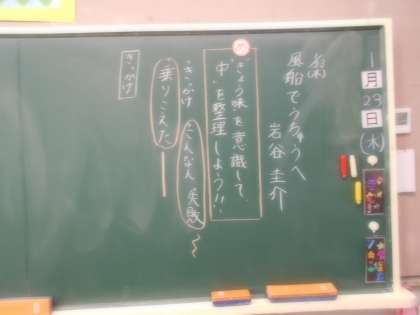 1月23日(木)
風船でうちゅうへ
岩谷 圭介
きょう味を意識して、
"中"を整理しよう!!
・きっかけ
こんなん 失敗
乗りこえた
きっかけ